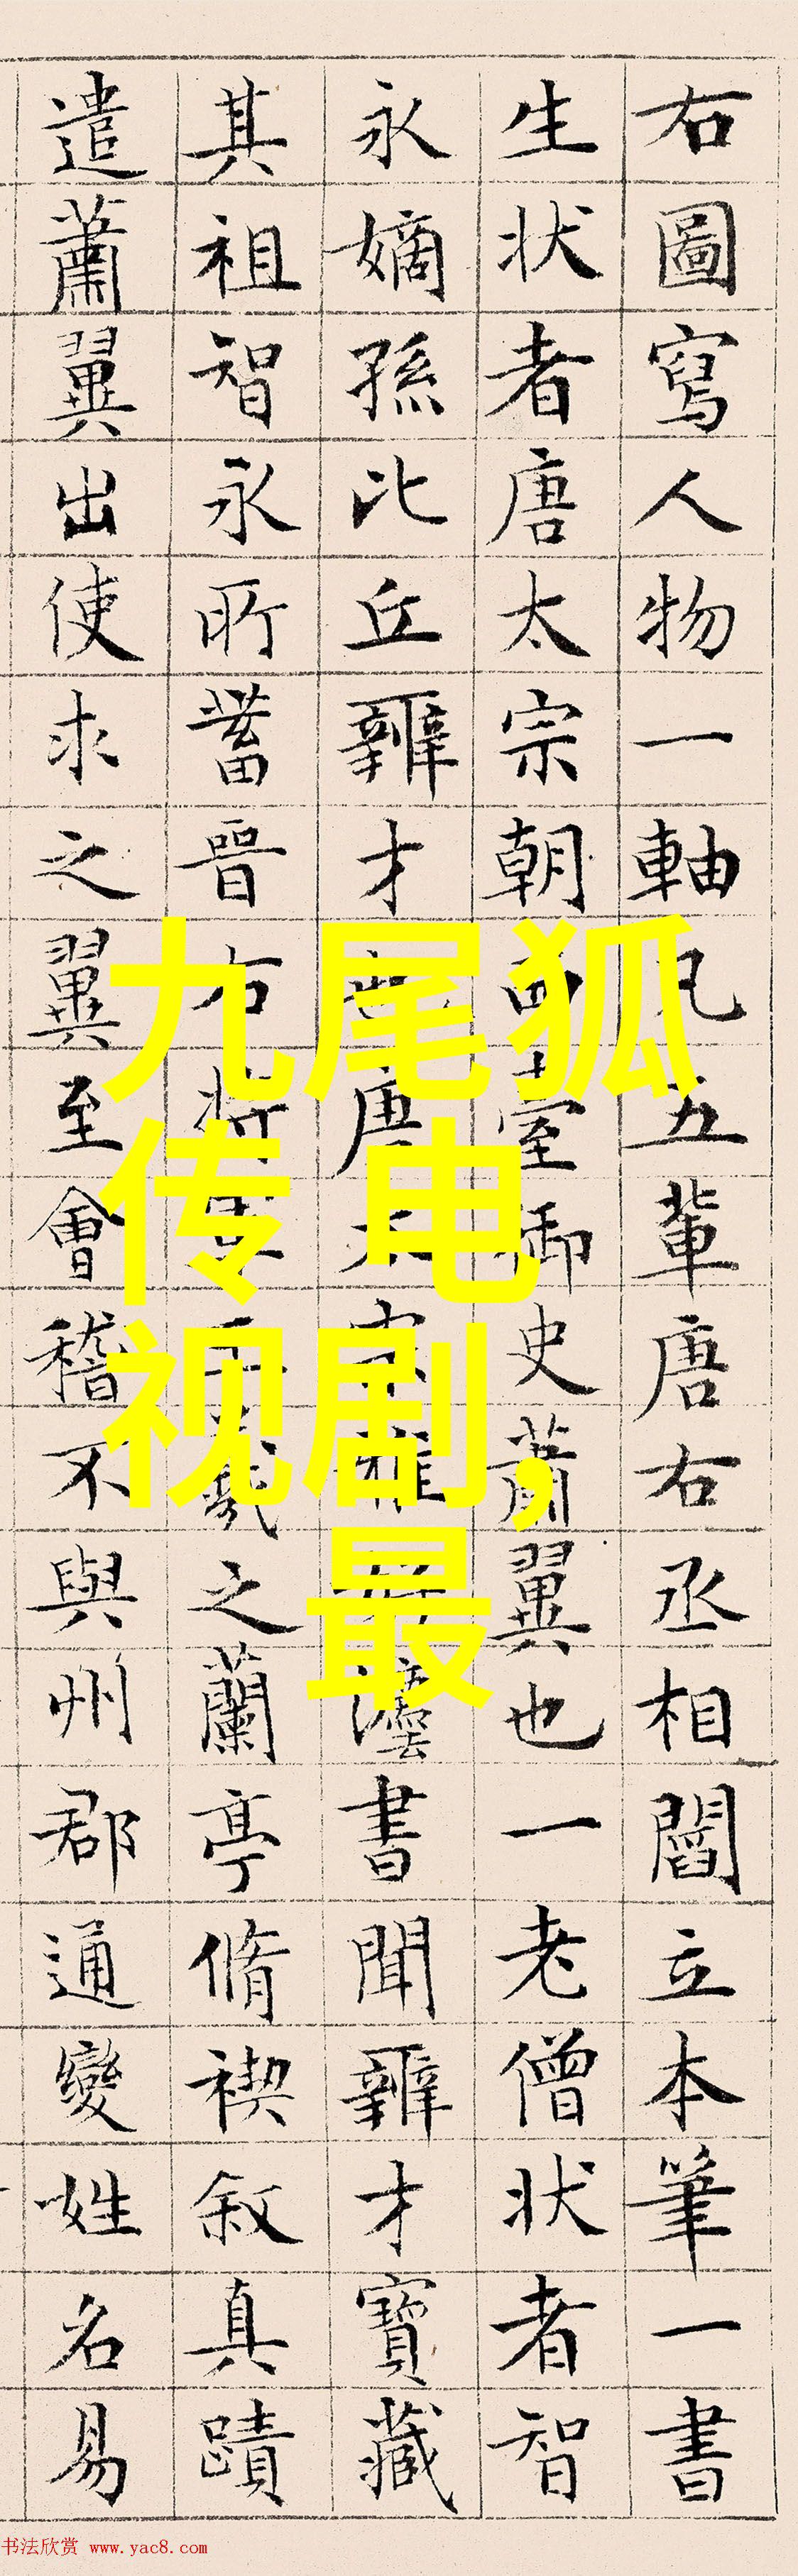 右圖寫人物一軸凡五輩唐右丞相閻立本筆一書
生状者唐太宗朝西臺御史蕭翼也一老僧状者智
永嫡孫比丘辯才唐太宗雅好灋書聞辯才寶藏
其祖智永所蓄晉右将軍王羲之蘭亭脩禊叙真蹟
遣蕭翼出使求之翼至會稽不與州郡通變姓名易
九尾狐
传 电
视剧,
最
书法欣赏 www.yac8.com